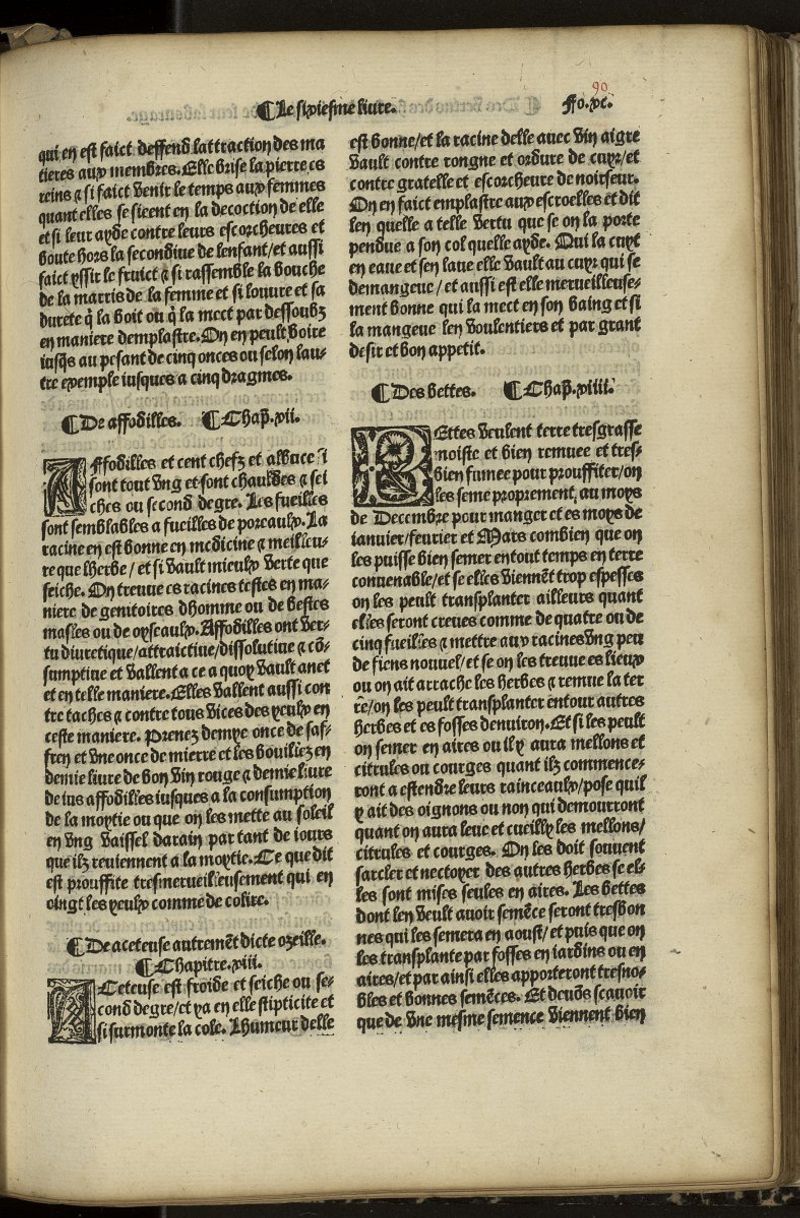 90
¶Le sixiesme liure.
Fo.xc.
qui en est faict deffend lattraction des ma
tieres aux membres. Elle brise la pierre es
reins ⁊ si faict venir le temps aux femmes
quant elles se sieent en la decoction de elle
et si leur ayde contre leurs escorcheures et
boute hors la secondine de lenfant/et aussi
faict yssir le fruict ⁊ si rassemble la bouche
de la marris de la femme et si louure et sa
durete q̃ la boit ou q̃ la mect par dessoubz
en maniere demplastre. On en peult boire
iusq̃s au pesant de cinq onces ou selon lau-
tre exemple iusques a cinq dragmes.
¶De affodilles. ¶Chap̃.xii.
AFfodilles et cent chefz et albuce ĩ
sont tout vng et sont chauldes ⁊ sei
ches ou second degre. Les fueilles
sont semblables a fueilles de poreaulx. La
racine en est bonne en medicine ⁊ meilleu-
re que lherbe / et si vault mieulx verte que
seiche. On treuue es racines testes en ma-
niere de genitoires dhomme ou de bestes
masles ou de oyseaulx. Affodilles ont ver-
tu diuretique/attraictiue/dissolutiue ⁊ cõ-
sumptiue et vallent a ce a quoy vault anet
et en telle maniere. Elles vallent aussi con
tre taches ⁊ contre tous vices des yeulx en
ceste maniere. Prenez demye once de saf-
fren et vne once de mierre et les bouillez en
demie liure de bon vin rouge ⁊ demie liure
de ius affodilles iusques a la consumption
de la moytie ou que on les mette au soleil
en vng vaissel darain par tant de iours
que ilz reuiennent a la moytie. Ce que dit
est prouffite tresmerueilleusement qui en
oingt les yeulx comme de colire.
¶De aceteuse autremẽt dicte ozeille.
¶Chapitre.xiii.
ACeteuse est froide et seiche ou se-
cond degre/et ya en elle stipticite et
si surmonte la cole. Lhumeur delle
est bonne/et la racine delle auec vin aigre
vault contre rongne et ordure de cuyr/et
contre gratelle et escorcheure de noirseur.
On en faict emplastre aux escroelles et dit
len quelle a telle vertu que se on la porte
pendue a son col quelle ayde. Qui la cuyt
en eaue et sen laue elle vault au cuyr qui se
demangeue / et aussi est elle merueilleuse-
ment bonne qui la mect en son baing et si
la mangeue len voulentiers et par grant
desir et bon appetit.
¶Des bettes. ¶Chap̃.xiiii.
BEttes veulent terre tresgrasse
moiste et bien remuee et tres-
bien fumee pour prouffiter/on
les seme proprement au moys
de Decembre pour manger et es moys de
ianuier/feurier et Mars combien que on
les puisse bien semer en tout temps en terre
conuenable/et se elles viennẽt trop espesses
on les peult transplanter ailleurs quant
elles seront creues comme de quatre ou de
cinq fueilles ⁊ mettre aux racines vng peu
de fiens nouuel/et se on les treuue es lieux
ou on ait arrache les herbes ⁊ remue la ter
re/on les peult transplanter entour autres
herbes et es fosses denuiron. Et si les peult
on semer en aires ou il y aura mellons et
citrules ou courges quant ilz commence-
ront a estendre leurs rainceaulx/pose quil
y ait des oignons ou non qui demourront
quant on aura leue et cueilly les mellons/
citrules et courges. On les doit souuent
sarcler et nectoyer des autres herbes se el-
les sont mises seules en aires. Les bettes
dont len veult auoir semẽce seront tresbon
nes qui les semera en aoust/ et puis que on
les transplante par fosses en iardins ou en
aires/et par ainsi elles apporteront tresno-
bles et bonnes semẽces. Et deuõs scauoir
que de vne mesme semence viennent bien